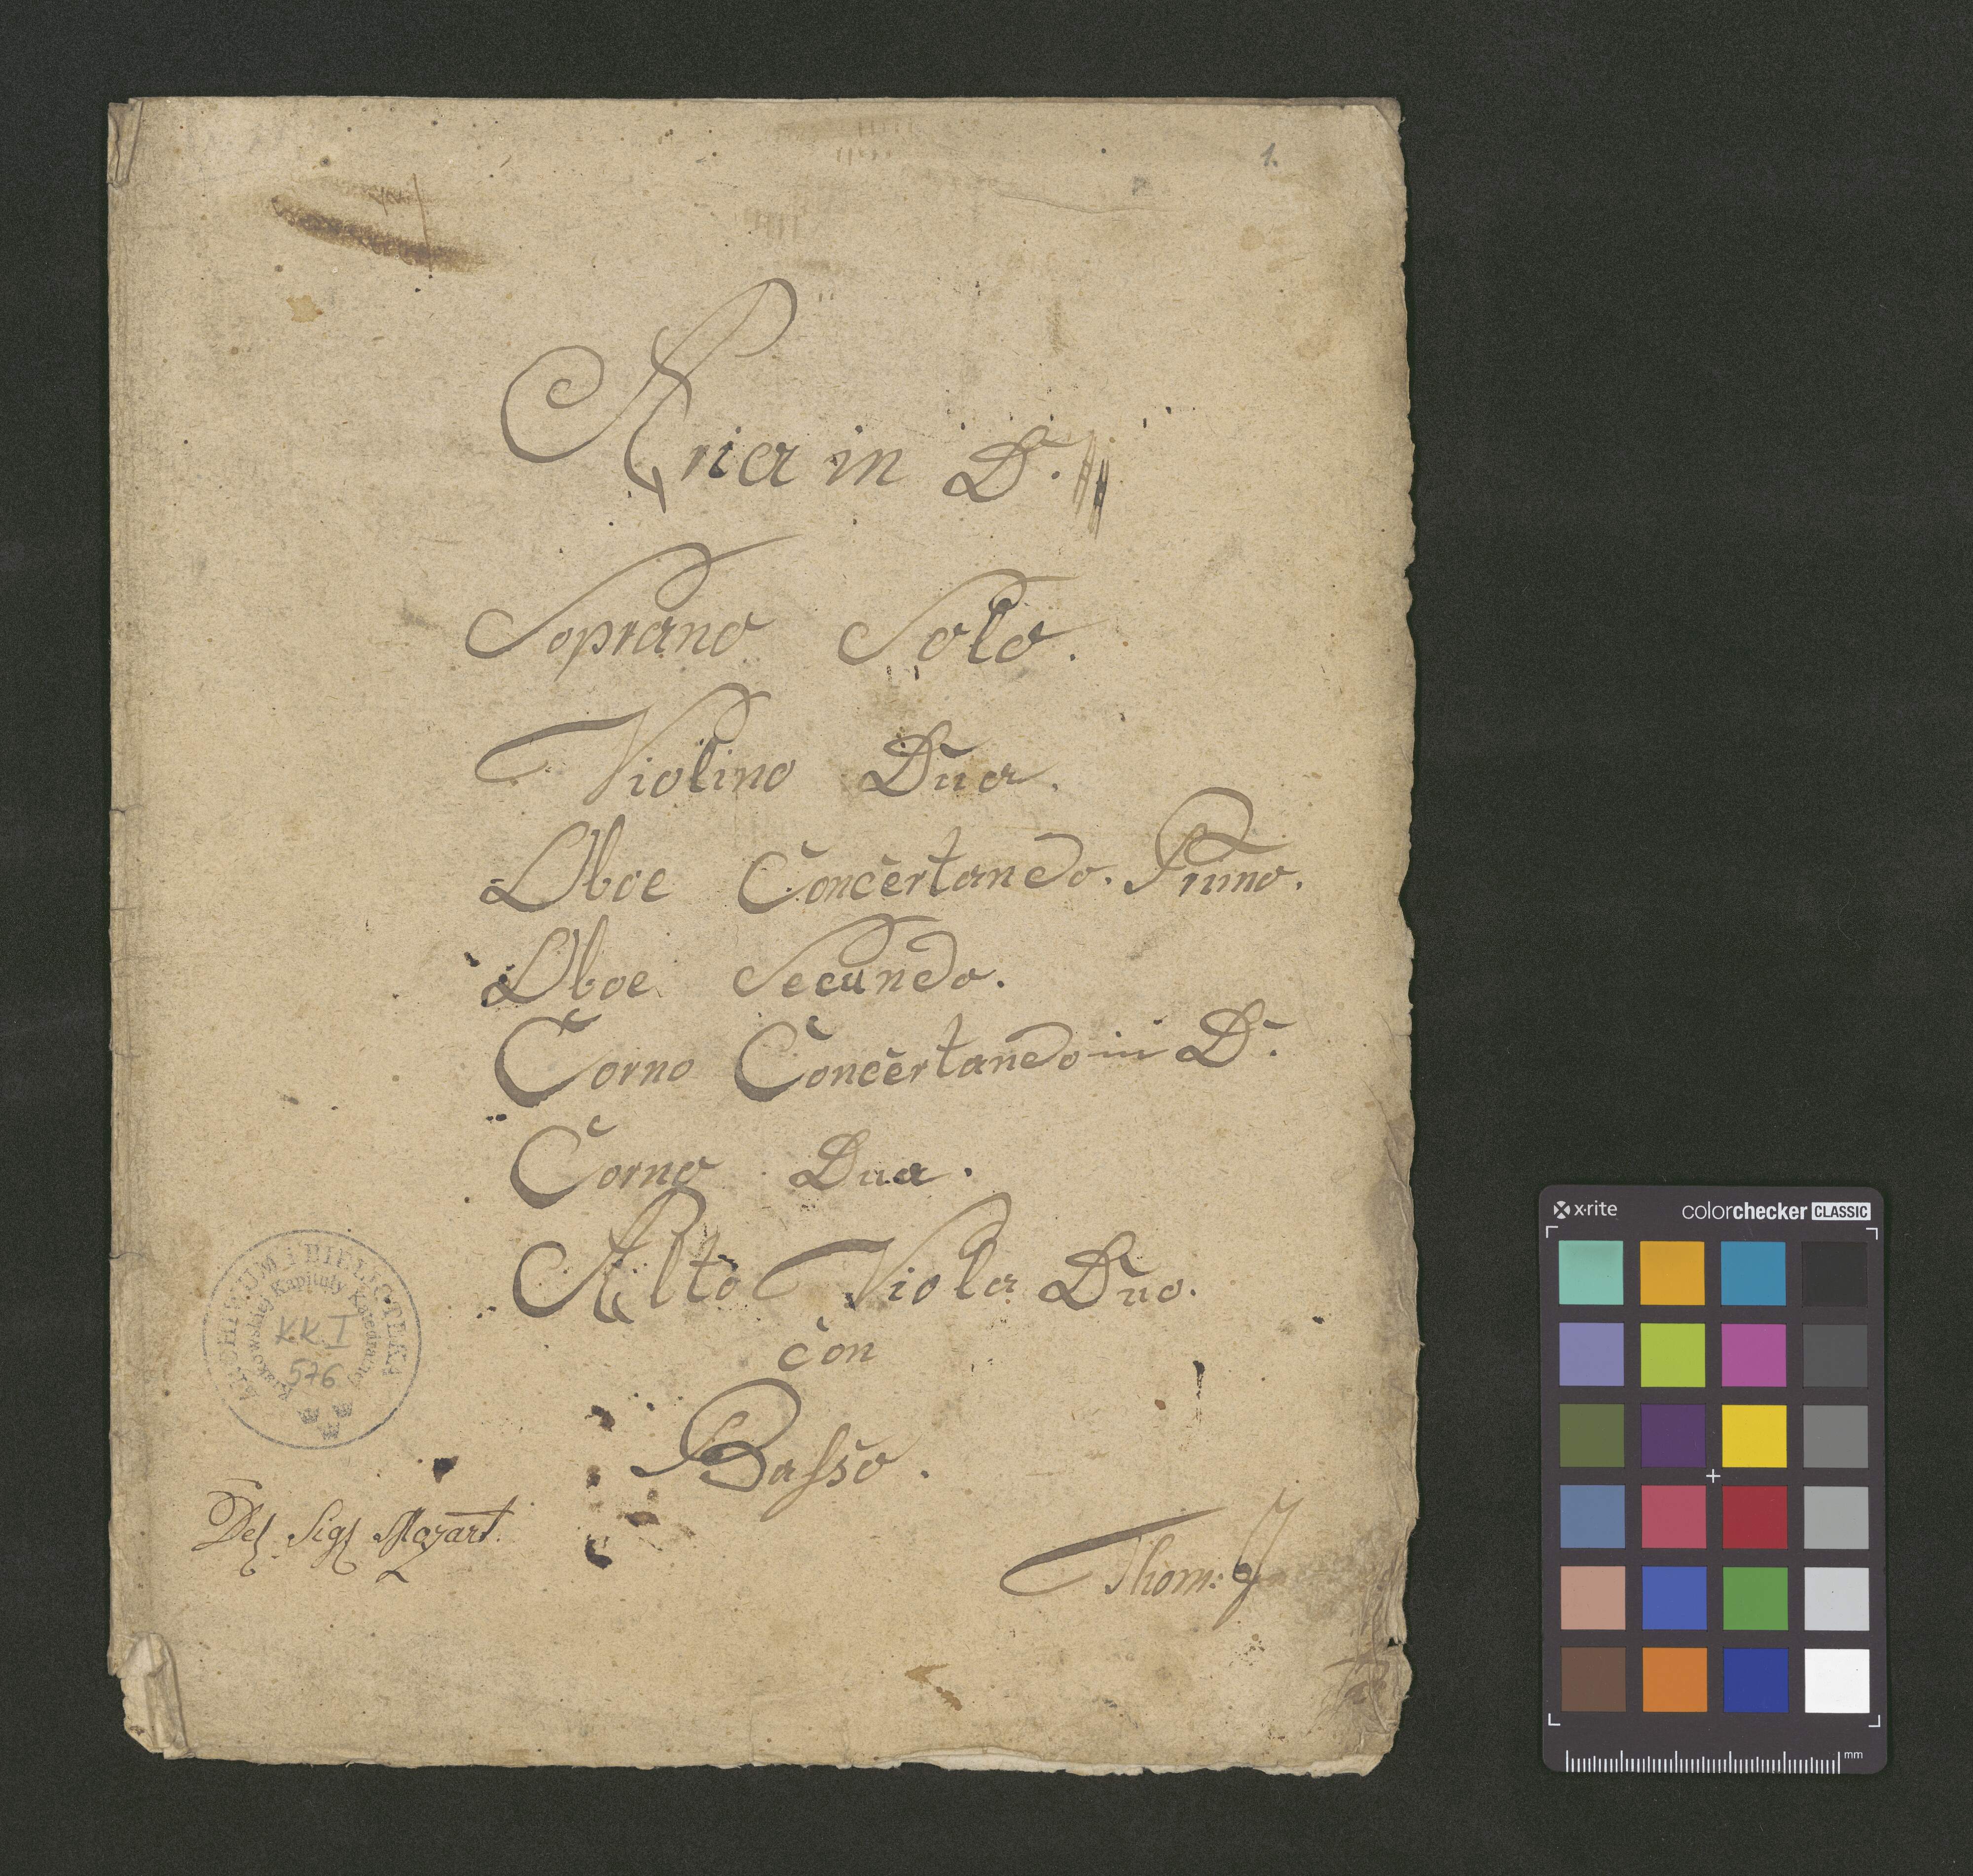 1.
Aria in D.
Soprano Solo.
Violino Dua.
Oboe Concertando. Primo.
Oboe Secundo.
Corno Concertando in D.
Corno Dua.
Alto Viola Duo.
con
Basso.
ARCHIWUM I BIBLIOTEKA
Krakowskiej Kapituły Katedralnej
KK I
576
Del Sigl Mozart.
Thom:
x-rite colorchecker CLASSIC
mm